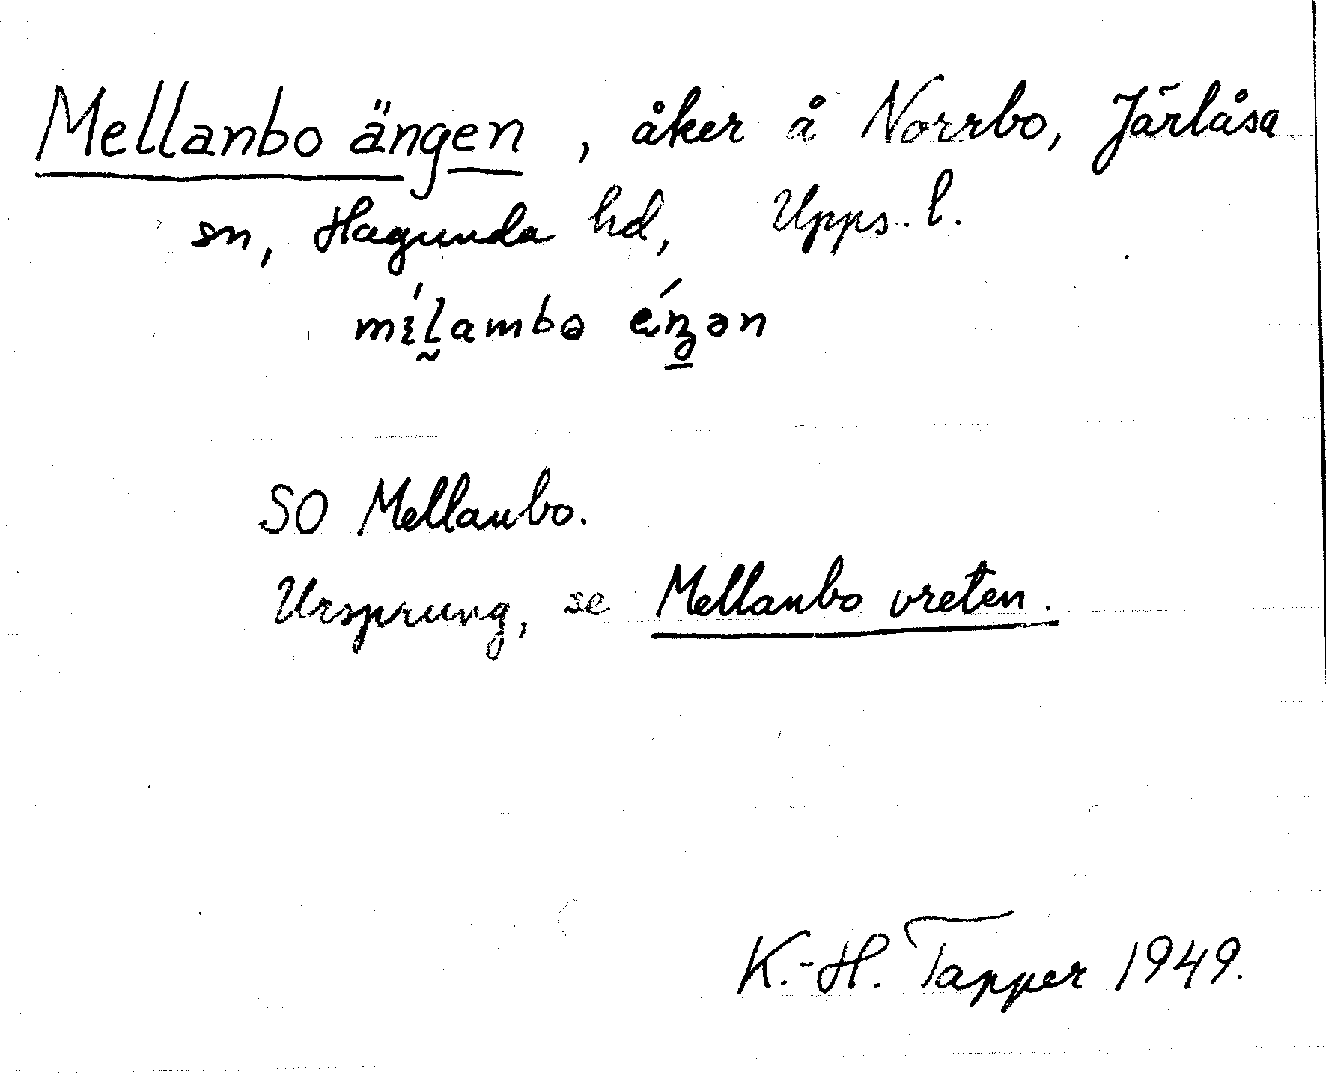 Mellanbo ängen, åker å Norrbo, Järlåsa
sn, Hagunda hd, Upps. l.
SO Mellanbo.
Ursprung, se Mellanbo vreten.
K.-H. Tapper 1949.